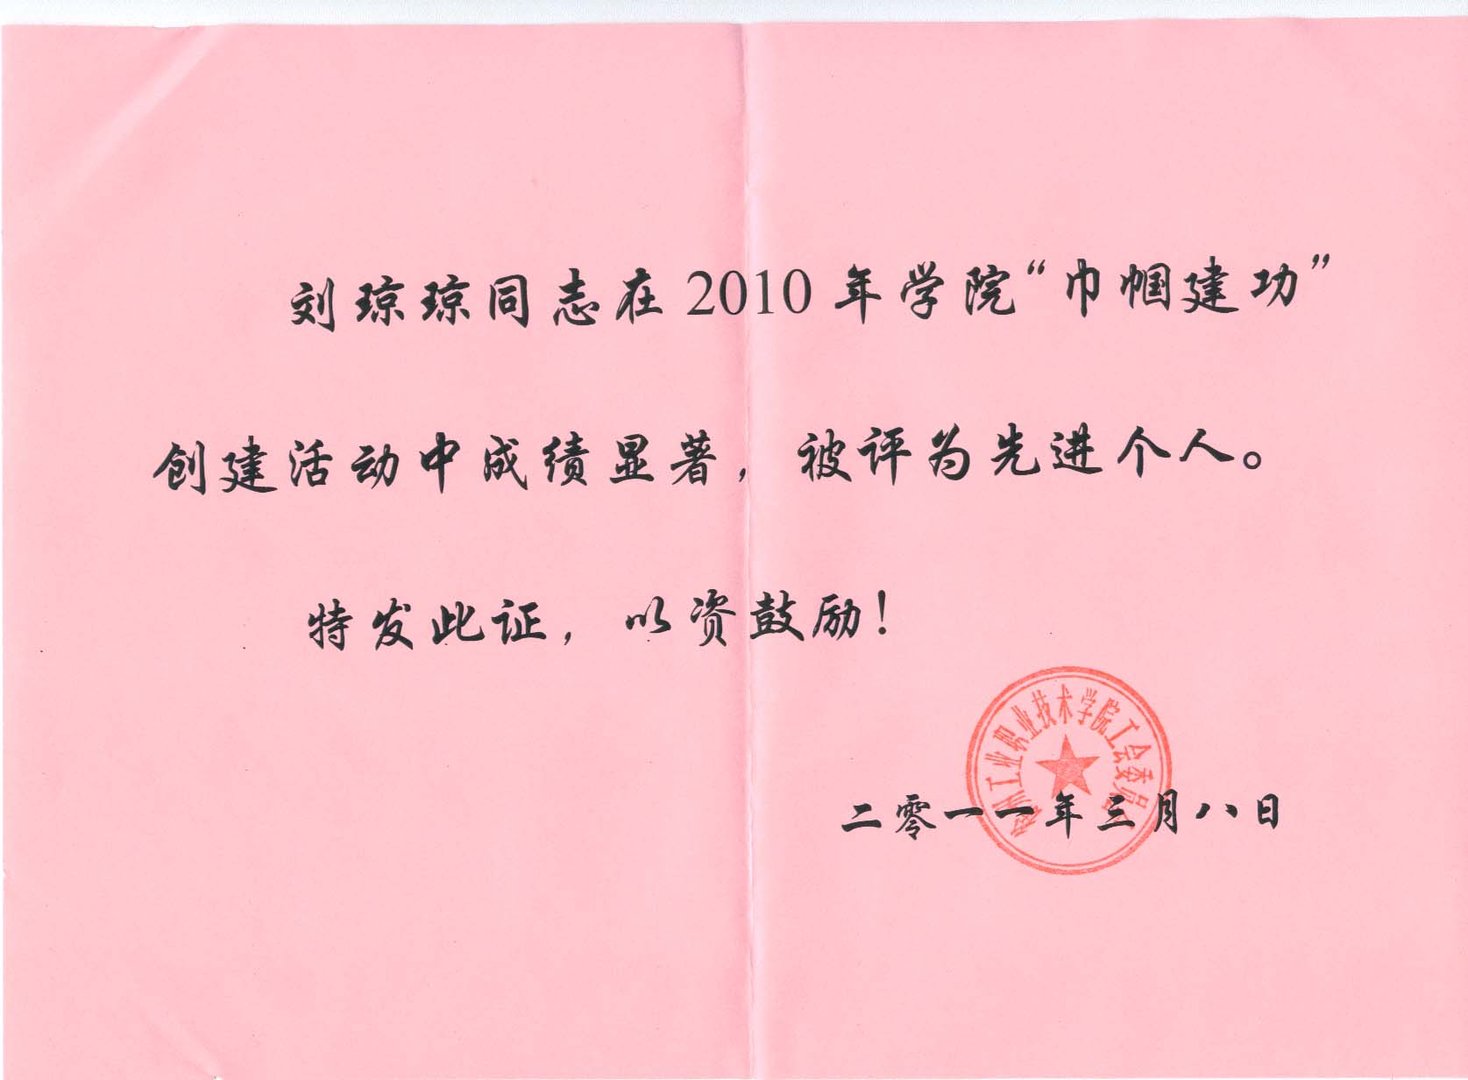 刘琼琼同志在2010年学院“巾帼建功”
创建活动中成绩显著，被评为先进个人。
特发此证，以资鼓励！
工业职业技术学院工会委员会
二零一一年三月八日